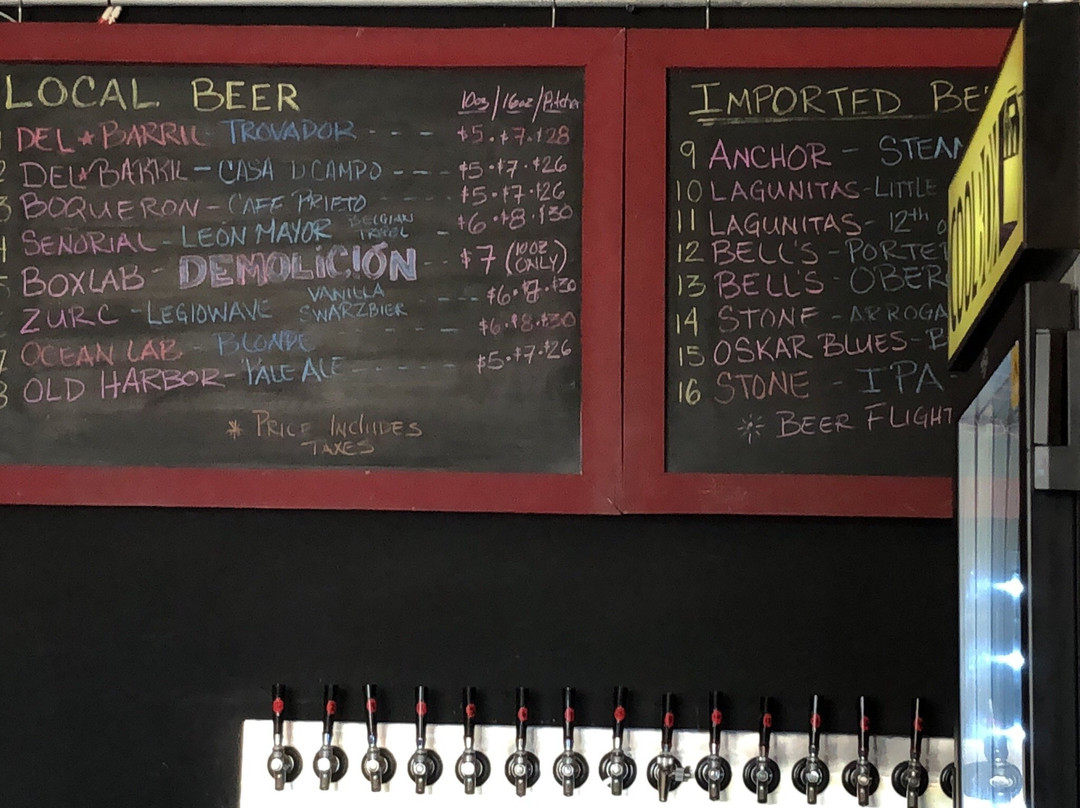 LOCAL BEER
10oz/16oz/Pitcher
DEL★BARRIL TROVADOR - - - $5·$7·$28
2 DEL★BARRIL - CASA DCAMPO - - - $5·$7·$26
3 BOQUERON - CAFE PRIETO $5·$7·$26
4 SEÑORIAL - LEON MAYOR BELGIAN TRIPEL - $6·$8·$30
BOXLAB - DEMOLICIÓN $7 (10OZ ONLY)
ZURC - LEGIOWAVE VANILLA SWARZBIER - - - $6·$8·$30
7 OCEAN LAB - BLONDE - - - - - $6·$8·$30
8 OLD HARBOR - PALE ALE - - - - - - $5·$7·$26
* PRICE INCLUDES
TAXES
IMPORTED BE
9 ANCHOR - STEAM
10 LAGUNITAS - LITTLE
11 LAGUNITAS - 12th o
12 BELL'S - PORTE
13 BELL'S - OBER
14 STONE - ARROGA
15 OSKAR BLUES - B
16 STONE - IPA -
BEER FLIGHT